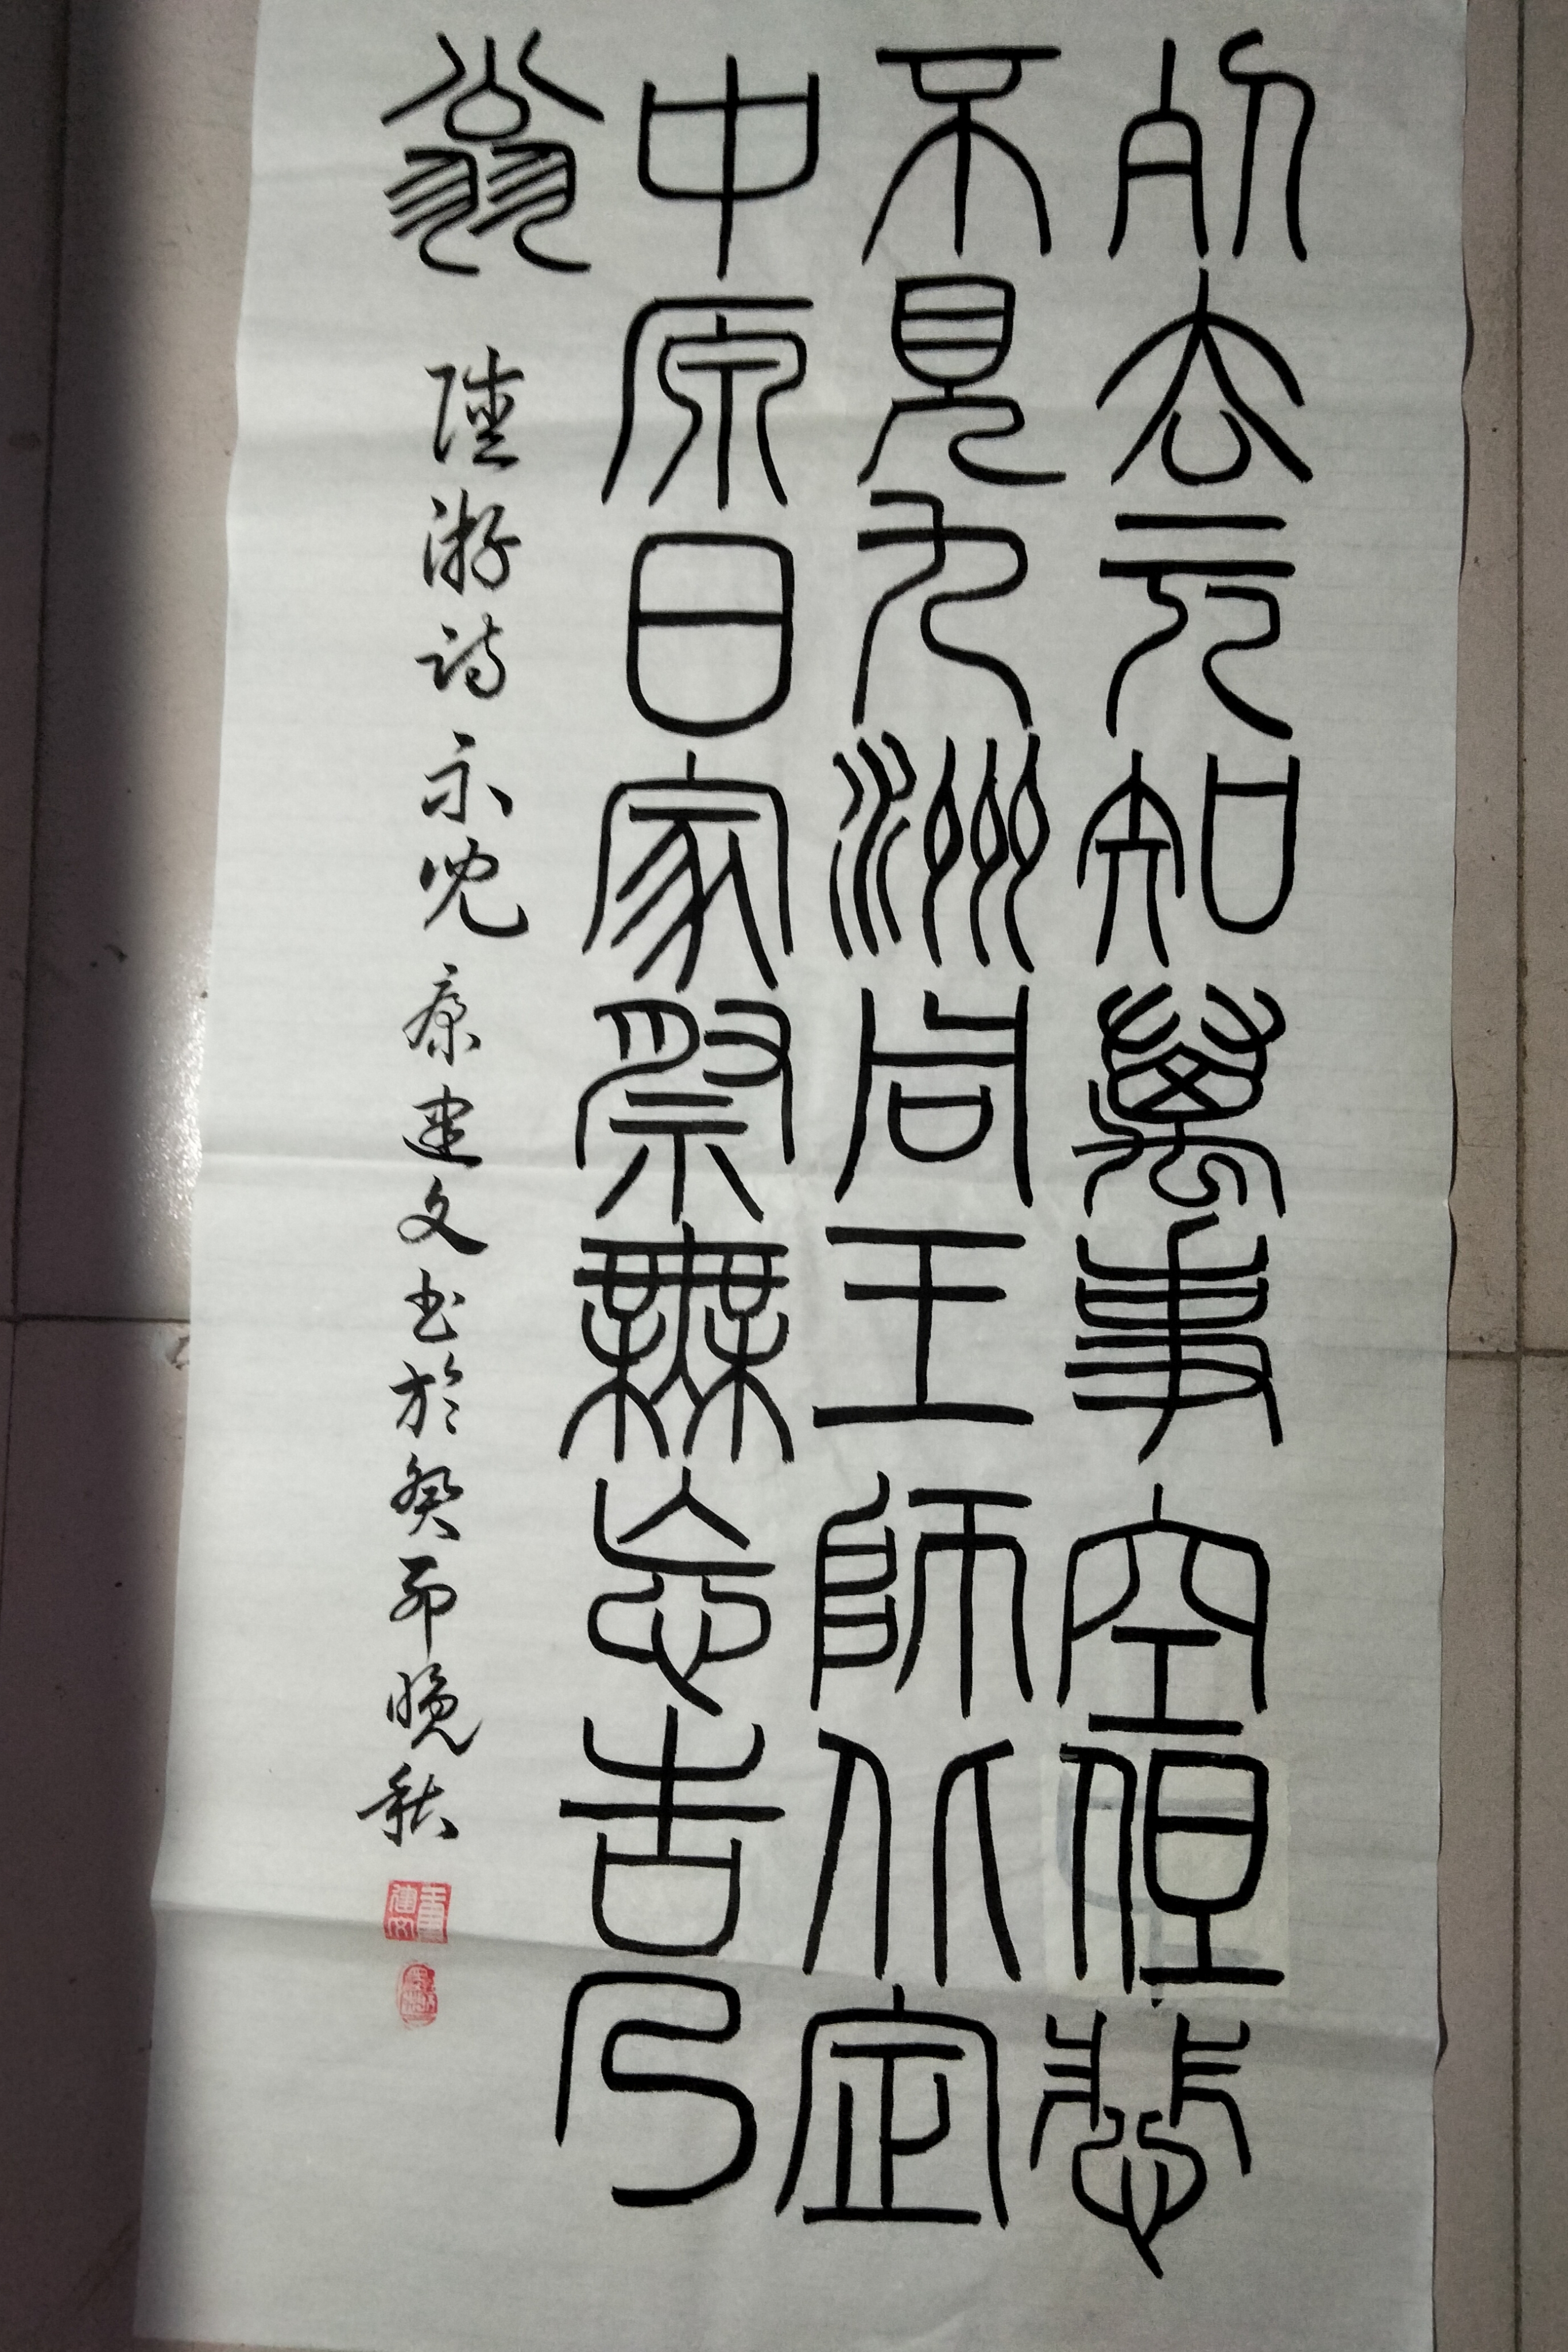 死去元知萬事空但悲
不見九洲同王師北定
中原日家祭無忘告乃
翁 陸游诗示兒 康建文书於癸卯晚秋